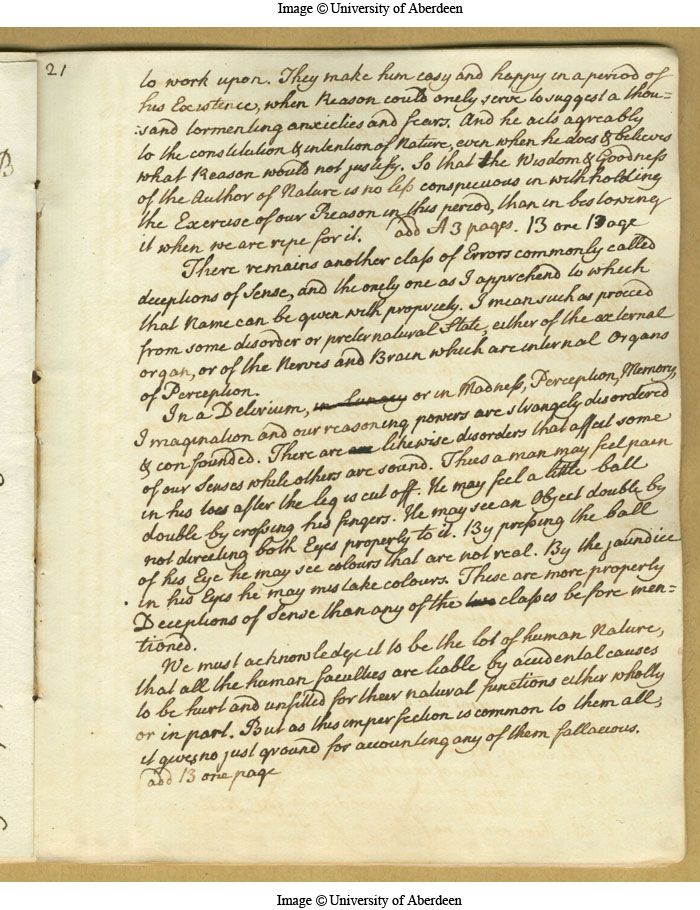 Image © University of Aberdeen
21
to work upon. They make him easy and happy in a period of
his Existence, when Reason could onely serve to suggest a thou=
=sand tormenting anxieties and fears. And he acts agreably
to the constitution & intention of Nature, even when he does & believes
what Reason would not justify. So that the Wisdom & Goodness
of the Author of Nature is no less conspicuous in withholding
the Exercise of our Reason in this period, than in bestowing
it when we are ripe for it. add A 3 pages. B one Page
There remains another class of Errors commonly called
deceptions of Sense, and the onely one as I apprehend to which
that Name can be given with propriety. I mean such as proceed
from some disorder or preternatural State, either of the external
organ, or of the Nerves and Brain which are internal Organs
of Perception.
In a Delirium, in Lunacy or in Madness, Perception, Memory,
Imagination and our reasoning powers are strangely disordered
& confounded. There are likewise disorders that affect some
of our Senses while others are sound. Thus a man may feel pain
in his toes after the leg is cut off. He may feel a little ball
double by crossing his fingers. He may see an Object double by
not directing both Eyes properly to it. By pressing the ball
of his Eye he may see colours that are not real. By the jaundice
in his Eyes he may mistake colours. These are more properly
Deceptions of Sense than any of the two classes before men=
tioned.
We must acknowledge it to be the lot of human Nature,
that all the human faculties are liable by accidental causes
to be hurt and unfitted for their natural functions either wholly
or in part. But as this imperfection is common to them all,
it gives no just ground for accounting any of them fallacious.
add B one page
Image © University of Aberdeen